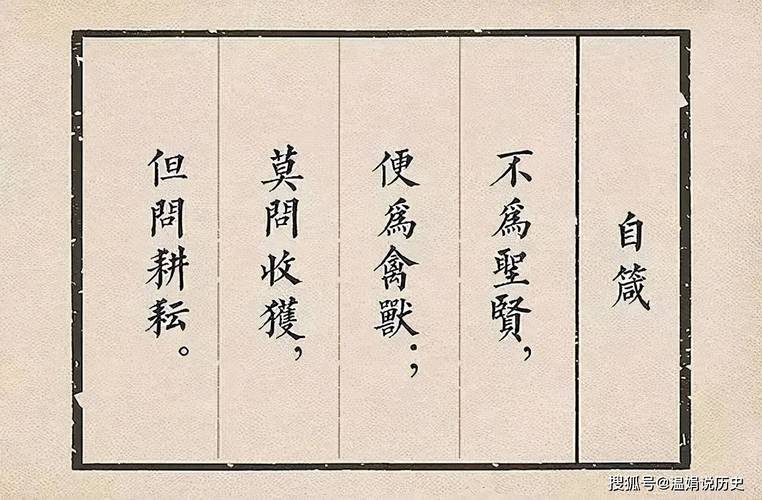 自箴
不爲聖賢，
便爲禽獸；
莫問收獲，
但問耕耘。
搜狐号@温娟说历史